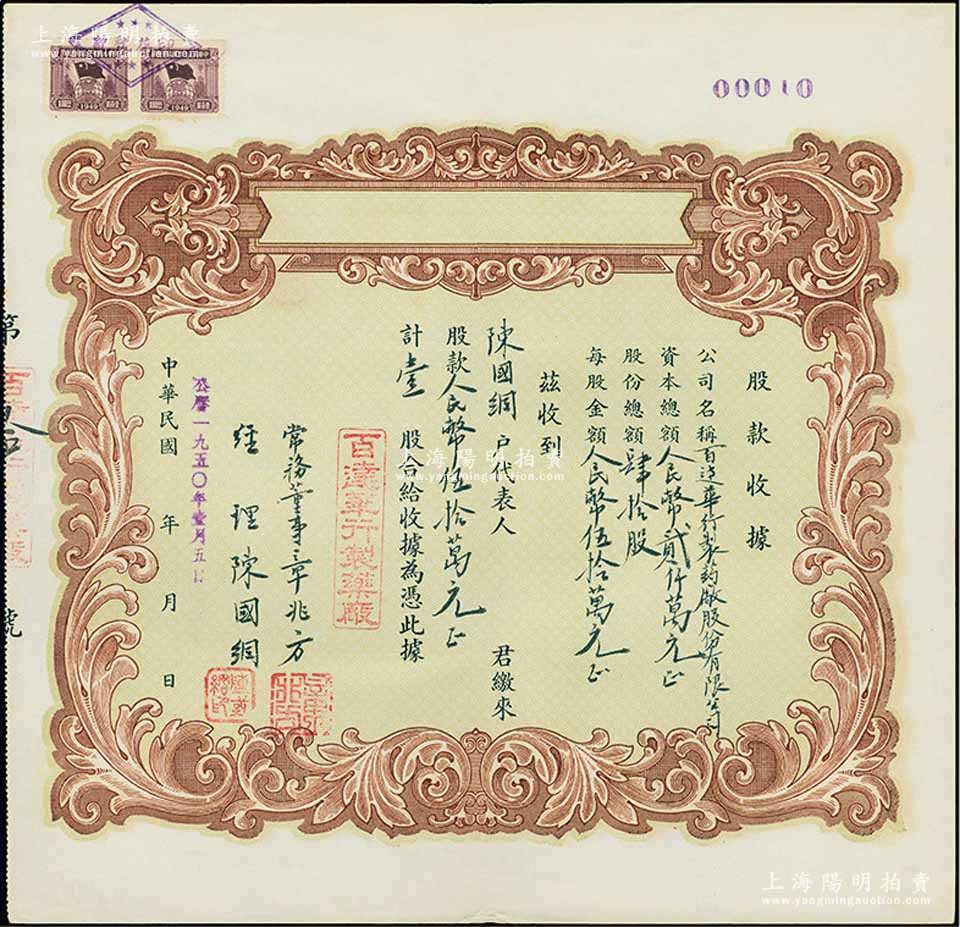 上海陽明拍賣
www.yangmingauction.com
1949
1949
00010
股款收據
公司名稱百達華行製药廠股份有限公司
資本總額人民幣貳仟萬元正
股份總額肆拾股
每股金額人民幣伍拾萬元正
茲收到
陳國綱戶代表人 君繳來
股款人民幣伍拾萬元正
計壹 股合給收據為憑此據
百達華行製藥廠
常務董事章兆方
經理陳國綱
公曆一九五〇年壹月五日
中華民國 年 月 日
第 號
上海陽明拍賣
www.yangmingauction.com
上海陽明拍賣
www.yangmingauction.com